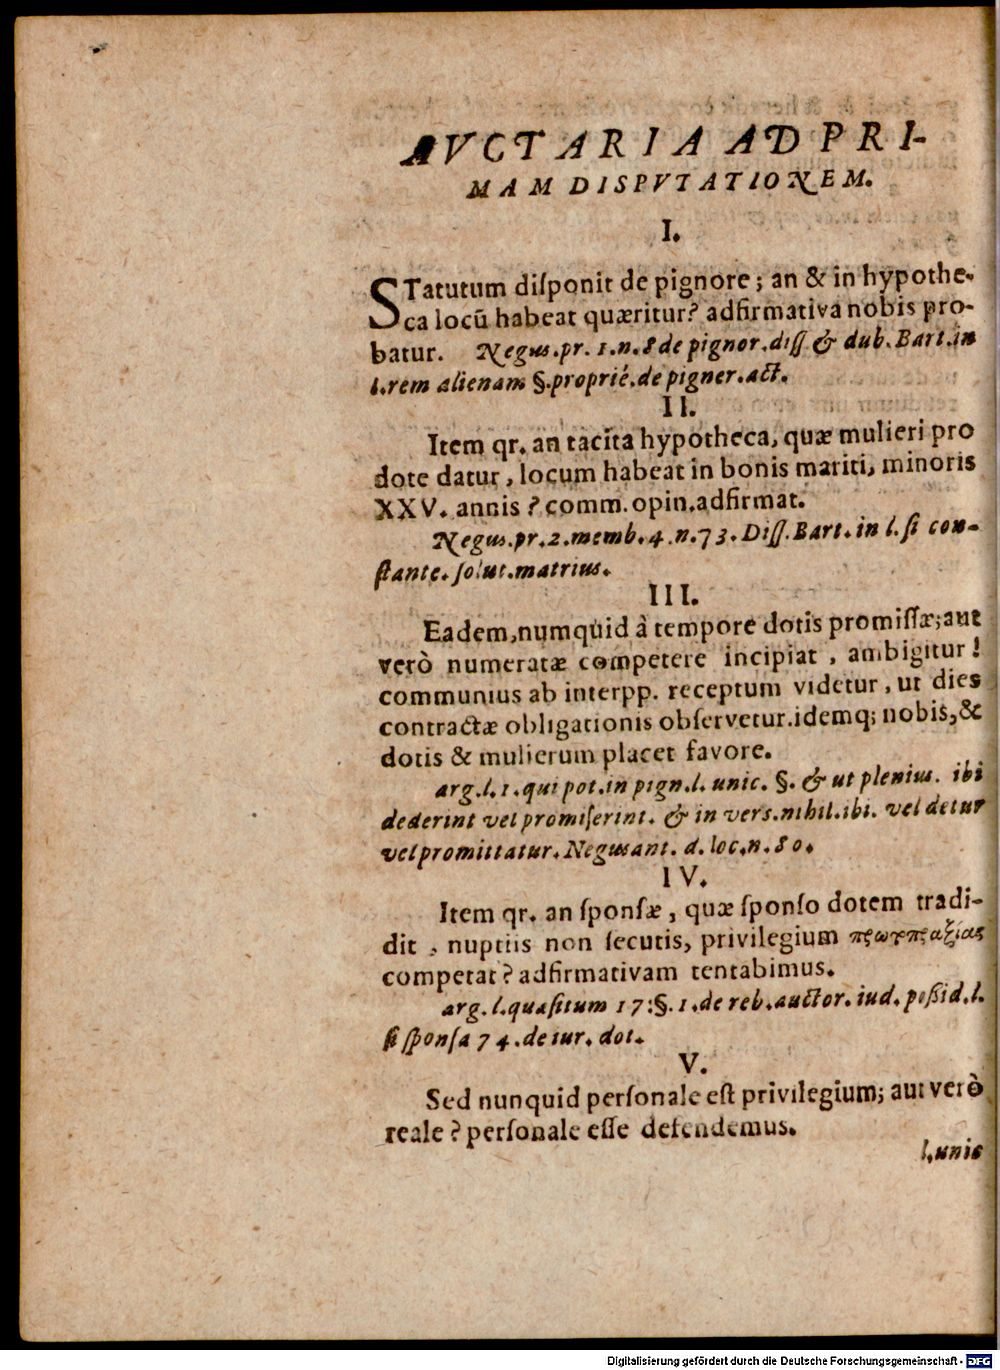 AVCTARIA AD PRI-
MAM DISPVTATIONEM.
I.
STatutum diſponit de pignore; an & in hypothe-
ca locū habeat quæritur? adfirmativa nobis pro-
batur. Negus. pr. 1. n. 8 de pignor. diſſ. & dub. Bart. in
l. rem alienam §. proprié. de pigner. act.
II.
Item qr. an tacita hypotheca, quæ mulieri pro
dote datur, locum habeat in bonis mariti, minoris
XXV. annis? comm. opin. adfirmat.
Negus. pr. 2. memb. 4. n. 73. Diſſ. Bart. in l. ſi con-
ſtante. ſolut. matrius.
III.
Eadem, numquid à tempore dotis promiſſæ; aut
verò numeratæ competere incipiat, ambigitur!
communius ab interpp. receptum videtur, ut dies
contractæ obligationis obſervetur. idemq; nobis, &
dotis & mulierum placet favore.
arg. l. 1. qui pot. in pign. l. unic. §. & ut plenius. ibi
dederint vel promiſerint. & in vers. nihil. ibi. vel detur
vel promittatur. Negusant. d. loc. n. 80.
IV.
Item qr. an ſponſæ, quæ ſponſo dotem tradi-
dit, nuptiis non ſecutis, privilegium πρωτπραξίας
competat? adfirmativam tentabimus.
arg. l. quaſitum 17: §. 1. de reb. auctor. iud. poßid. l.
ſi ſponſa 74. de iur. dot.
V.
Sed nunquid perſonale eſt privilegium; aut verò
reale? perſonale eſſe defendemus.
l. unic
Digitalisierung gefördert durch die Deutsche Forschungsgemeinschaft - DFG